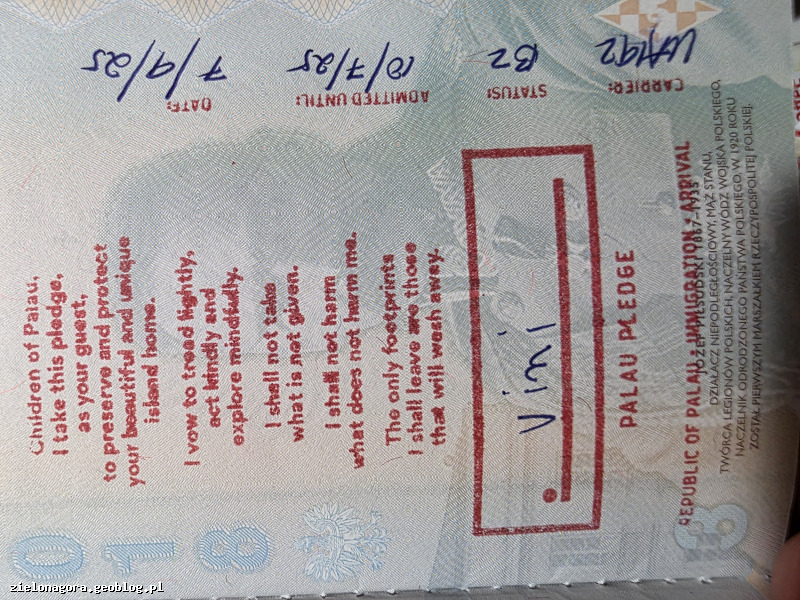 Children of Palau,
I take this pledge,
as your guest,
to preserve and protect
your beautiful and unique
island home.
I vow to tread lightly,
act kindly and
explore mindfully.
I shall not take
what is not given.
I shall not harm
what does not harm me.
The only footprints
I shall leave are those
that will wash away.
Vini
PALAU PLEDGE
REPUBLIC OF PALAU IMMIGRATION • ARRIVAL
DATE: 7/9/25
ADMITTED UNTIL: 10/7/25
STATUS: BZ
CARRIER: UA192
JÓZEF PIŁSUDSKI 1867–1935
DZIAŁACZ NIEPODLEGŁOŚCIOWY, MĄŻ STANU,
TWÓRCA LEGIONÓW POLSKICH, NACZELNY WÓDZ WOJSKA POLSKIEGO,
NACZELNIK ODRODZONEGO PAŃSTWA POLSKIEGO, W 1920 ROKU
ZOSTAŁ PIERWSZYM MARSZAŁKIEM RZECZYPOSPOLITEJ POLSKIEJ.
018
8
zielonagora.geoblog.pl